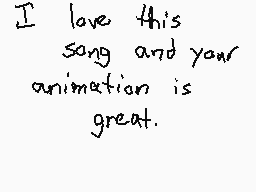 I love this
song and your
animation is
great.